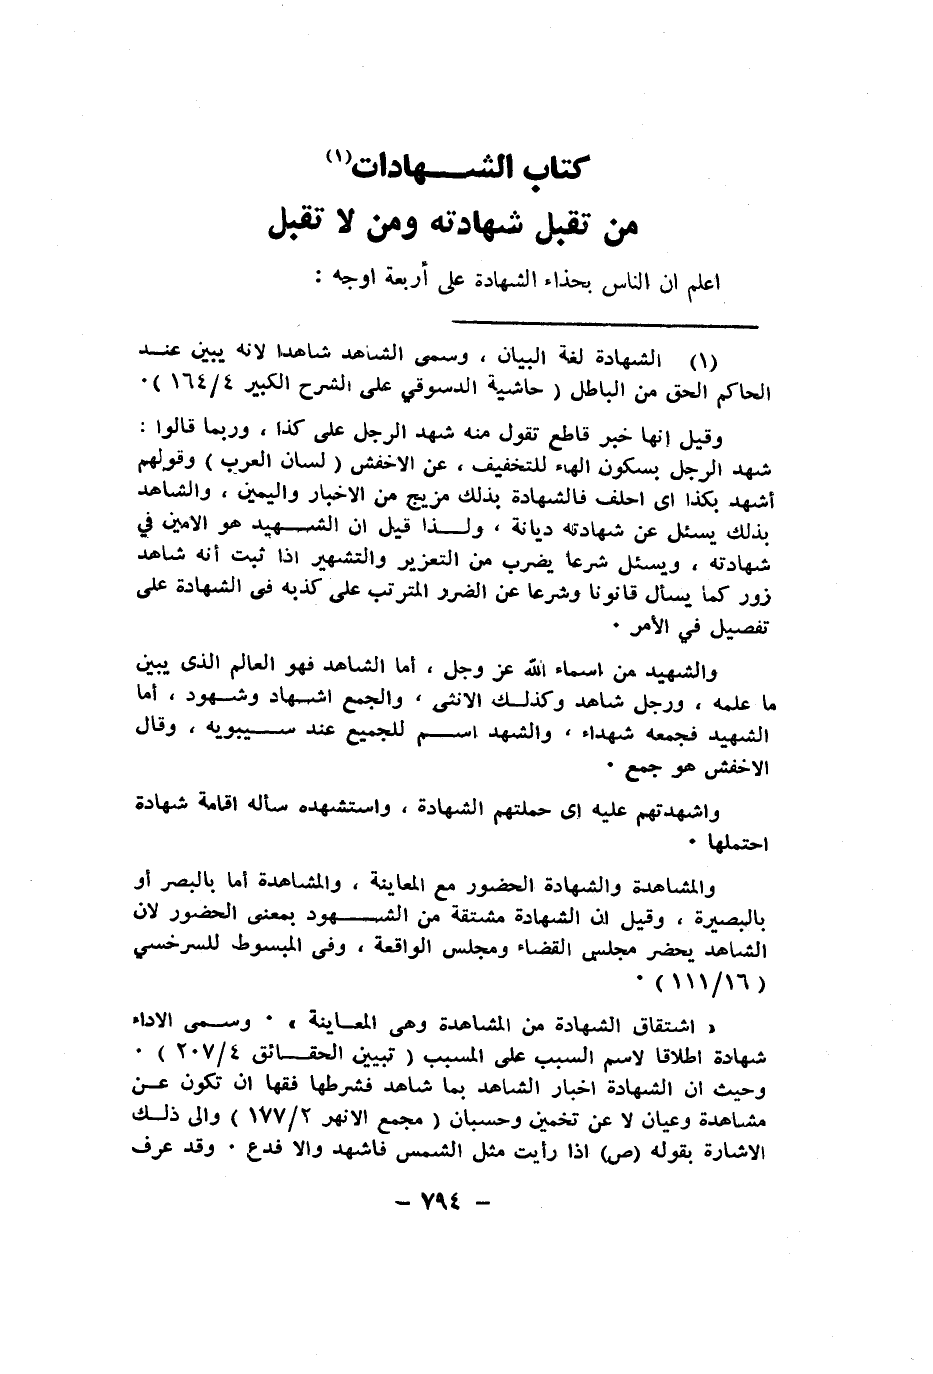 كتاب الشـــهادات(١)
من تقبل شهادته ومن لا تقبل
اعلم ان الناس بحذاء الشهادة على أربعة اوجه :
(١) الشهادة لغة البيان ، وسمى الشاهد شاهدا لانه يبين عنــد
الحاكم الحق من الباطل ( حاشية الدسوقي على الشرح الكبير ١٦٤/٤ )٠
وقيل إنها خبر قاطع تقول منه شهد الرجل على كذا ، وربما قالوا :
شهد الرجل بسكون الهاء للتخفيف ، عن الاخفش ( لسان العرب ) وقولهم
أشهد بكذا اى احلف فالشهادة بذلك مزيج من الاخبار واليمين ، والشاهد
بذلك يسئل عن شهادته ديانة ، ولــذا قيل ان الشــهيد هو الامين في
شهادته ، ويسئل شرعا يضرب من التعزير والتشهير اذا ثبت أنه شاهد
زور كما يسأل قانونا وشرعا عن الضرر المترتب على كذبه فى الشهادة على
تفصيل في الأمر ٠
والشهيد من اسماء الله عز وجل ، أما الشاهد فهو العالم الذى يبين
ما علمه ، ورجل شاهد وكذلــك الانثى ، والجمع اشــهاد وشــهود ، أما
الشهيد فجمعه شهداء ، والشهد اســـم للجميع عند ســـيبويه ، وقال
الاخفش هو جمع ٠
واشهدتهم عليه اى حملتهم الشهادة ، واستشهده سأله اقامة شهادة
احتملها ٠
والمشاهدة والشهادة الحضور مع المعاينة ، والمشاهدة أما بالبصر أو
بالبصيرة ، وقيل ان الشهادة مشتقة من الشــهود بمعنى الحضور لان
الشاهد يحضر مجلس القضاء ومجلس الواقعة ، وفى المبسوط للسرخسي
( ١١١/١٦ ) ٠
« اشتقاق الشهادة من المشاهدة وهى المعــاينة » ٠ وســمى الاداء
شهادة اطلاقا لاسم السبب على المسبب ( تبيين الحقــائق ٢٠٧/٤ ) ٠
وحيث ان الشهادة اخبار الشاهد بما شاهد فشرطها فقها ان تكون عــن
مشاهدة وعيان لا عن تخمين وحسبان ( مجمع الانهر ١٧٧/٢ ) والى ذلــك
الاشارة بقوله (ص) اذا رأيت مثل الشمس فاشهد والا فدع ٠ وقد عرف
– ٧٩٤ –